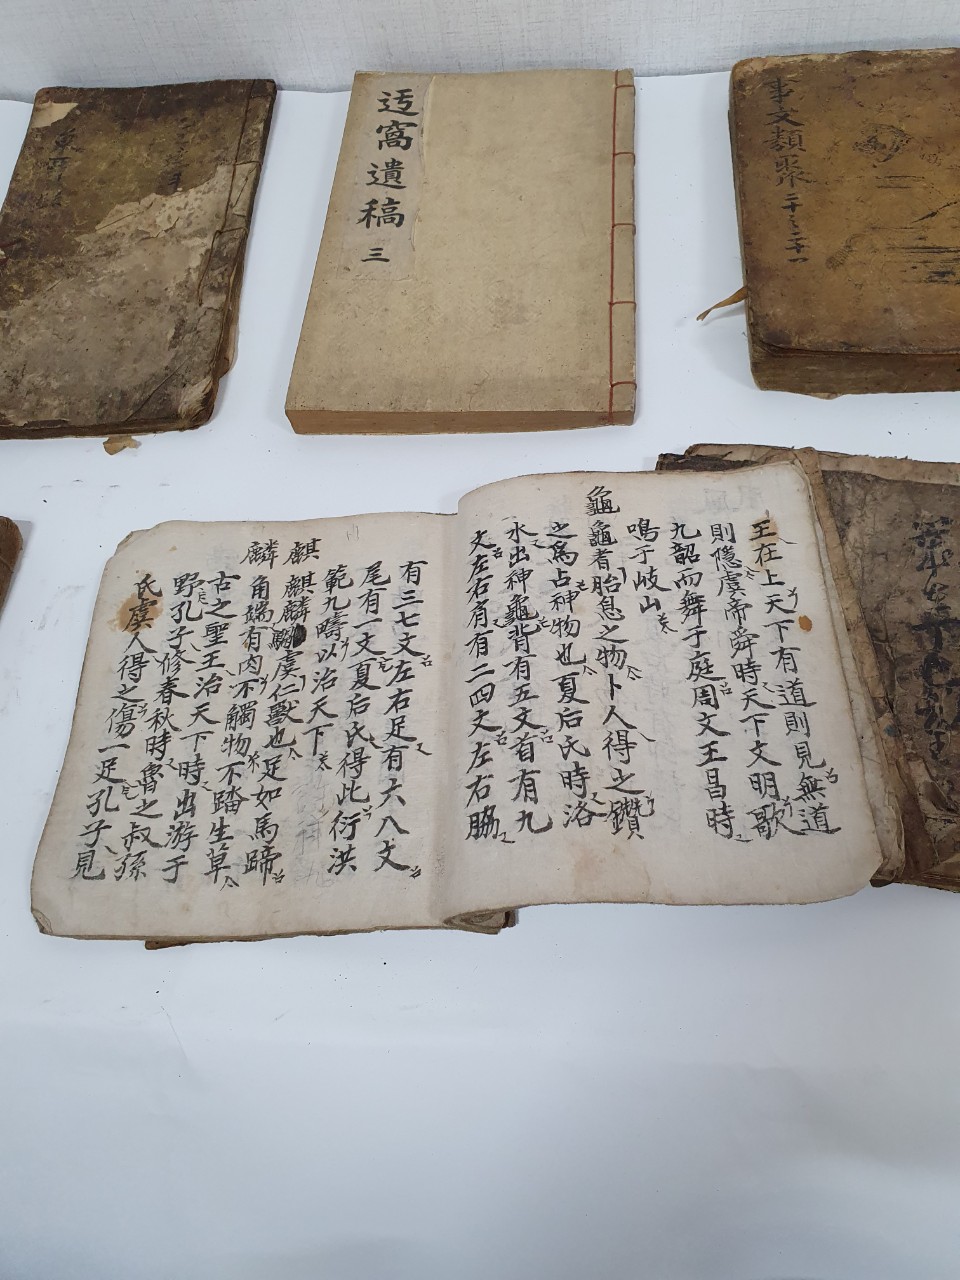 迃窩遺稿
三
事文類聚 二十之二十一
王在上天下有道則見無道
則隱虞帝舜時天下文明歌
九韶而舞于庭周文王昌時
鳴于岐山
龜 龜者胎息之物卜人得之鑽
之爲占神物也夏后氏時洛
水出神龜背有五文首有九
文左右肩有二四文左右脇
有三七文左右足有六八文
尾有一文夏后氏得此衍洪
範九疇以治天下
麒 麒麟騶虞仁獸也足如馬蹄
麟 角端有肉不觸物不踏生草
古之聖王治天下時出游于
野孔子修春秋時魯之叔孫
氏虞人得之傷一足孔子見